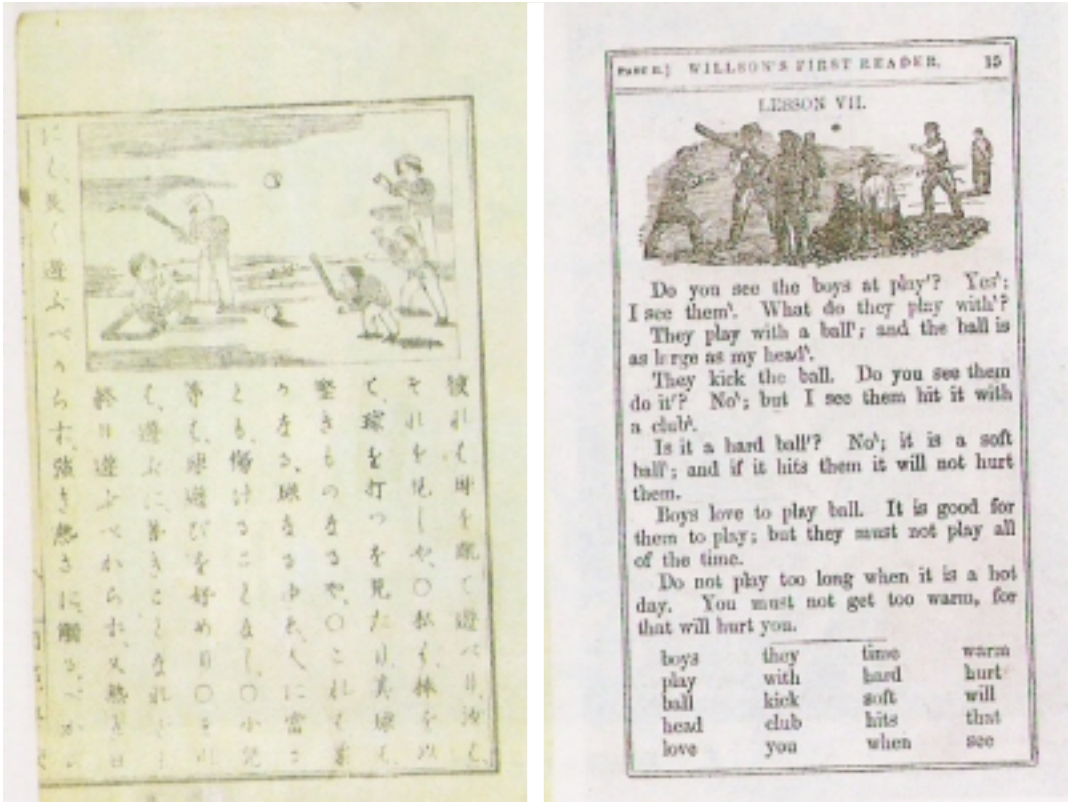 それを見しや、〇私も、棒を以
て、球を打つを見たり、其球も、
堅きものなるや、〇これも
かなる、球なるゆゑ、人に當る
とも、傷けることなし、〇小児
等も、球遊びを好めり〇
も、遊ぶに善きことなれとも
終日遊ぶべからず、又熱き日
にも、長く遊ぶべからず、強き熱さに觸るべか
PART II.] WILLSON'S FIRST READER. 15
LESSON VII.
Do you see the boys at play'? Yes`;
I see them`. What do they play with'?
They play with a ball`; and the ball is
as large as my head`.
They kick the ball. Do you see them
do it'? No`; but I see them hit it with
a club`.
Is it a hard ball'? No`; it is a soft
ball`; and if it hits them it will not hurt
them.
Boys love to play ball. It is good for
them to play; but they must not play all
of the time.
Do not play too long when it is a hot
day. You must not get too warm, for
that will hurt you.
boys they time warm
play with hard hurt
ball kick soft will
head club hits that
love you when see